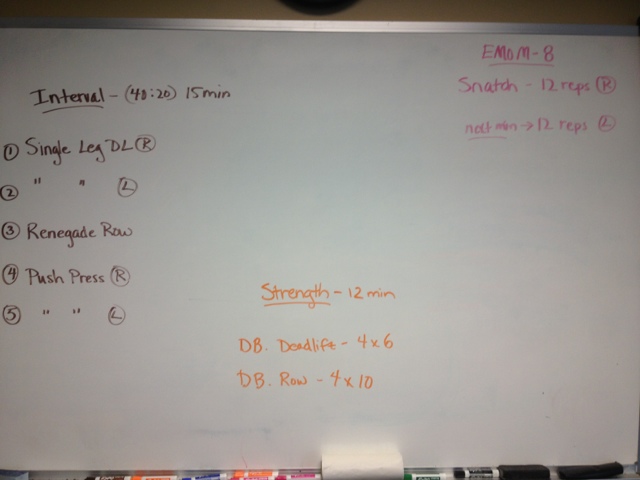 Interval - (40:20) 15min
① Single Leg DL Ⓡ
② " " Ⓛ
③ Renegade Row
④ Push Press Ⓡ
⑤ " " Ⓛ
Strength - 12 min
DB. Deadlift - 4 x 6
DB. Row - 4 x 10
EMOM - 8
Snatch - 12 reps Ⓡ
next min → 12 reps Ⓛ